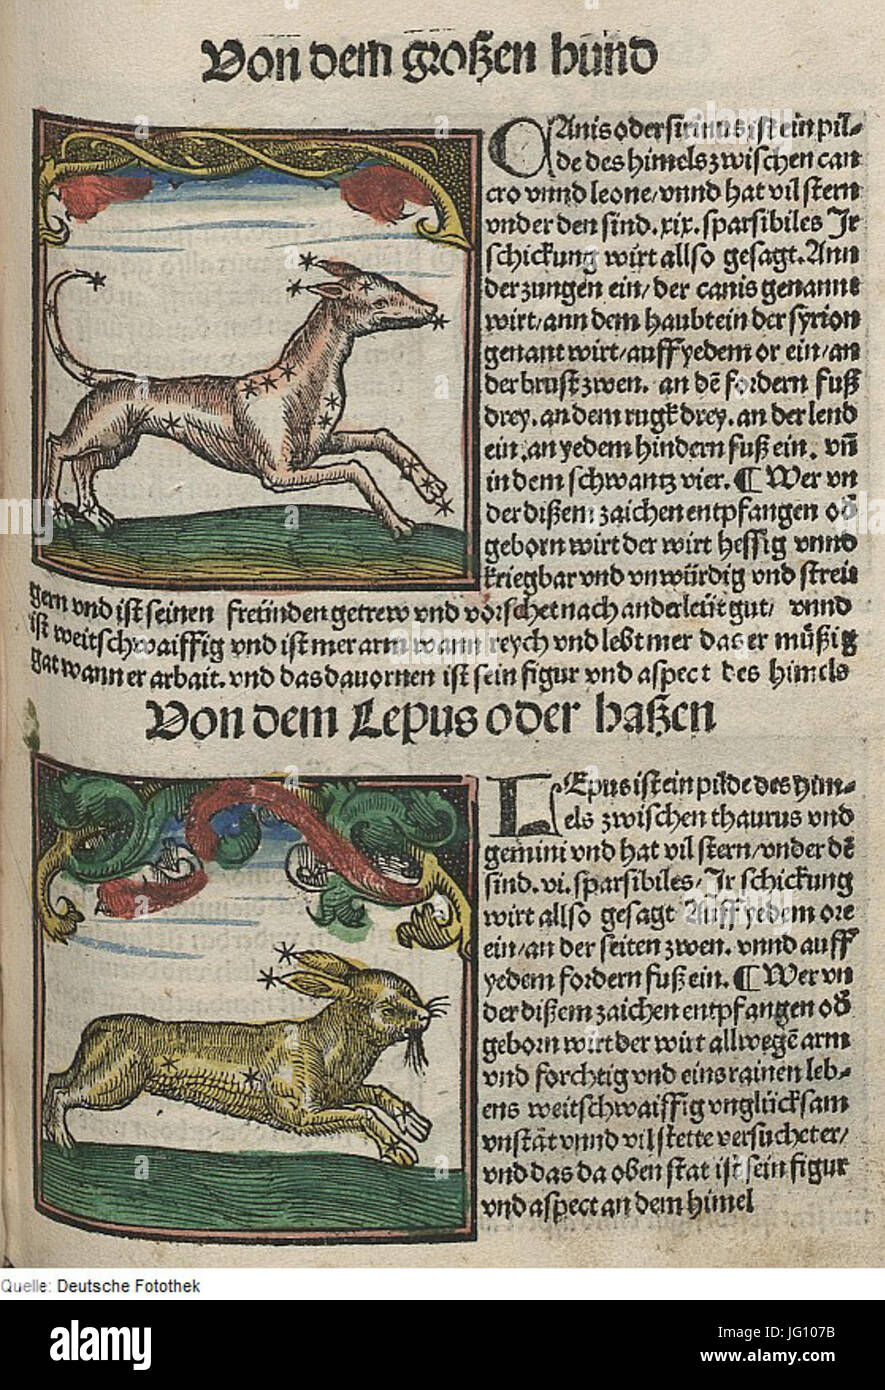 Von dem großen hund
CAnis oder sirius ist ein pil-
de des himels zwischen can
cro vnnd leone/vnnd hat vil stern
vnder den sind.xix.sparsibiles Jr
schickung wirt allso gesagt.Ann
der zungen ein/der canis genannt
wirt/ann dem haubt ein der syrion
genant wirt/auff yedem or ein/an
der brust zwen. an dē fordern fuß
drey.an dem rugk drey.an der lend
ein.an yedem hindern fuß ein. vn̄
in dem schwantz vier.¶ Wer vn
der dißem zaichen entpfangen od̄
geborn wirt der wirt hessig vnnd
kriegbar vnd vnwürdig vnd streü
gern vnd ist seinen freünden getrew vnd vorschet nach ander leüt gut/ vnnd
ist weitschwaiffig vnd ist mer arm wann reych vnd lebt mer das er müßig
gat wann er arbait.vnd das dauornen ist sein figur vnd aspect des himels
Von dem Lepus oder haßen
LEpus ist ein pilde des hym-
els zwischen thaurus vnd
gemini vnd hat vil stern/vnder dē
sind.vi.sparsibiles/Jr schickung
wirt allso gesagt Auff yedem ore
ein/an der seiten zwen. vnnd auff
yedem fordern fuß ein.¶ Wer vn
der dißem zaichen entpfangen od̄
geborn wirt der wirt allwegē arm
vnd forchtig vnd eins rainen leb-
ens weitschwaiffig vnglücksam
vnstät vnnd vil stette versuchet er/
vnd das da oben stat ist sein figur
vnd aspect an dem himel
Quelle: Deutsche Fotothek
alamy stock photo
JG107B
www.alamy.com